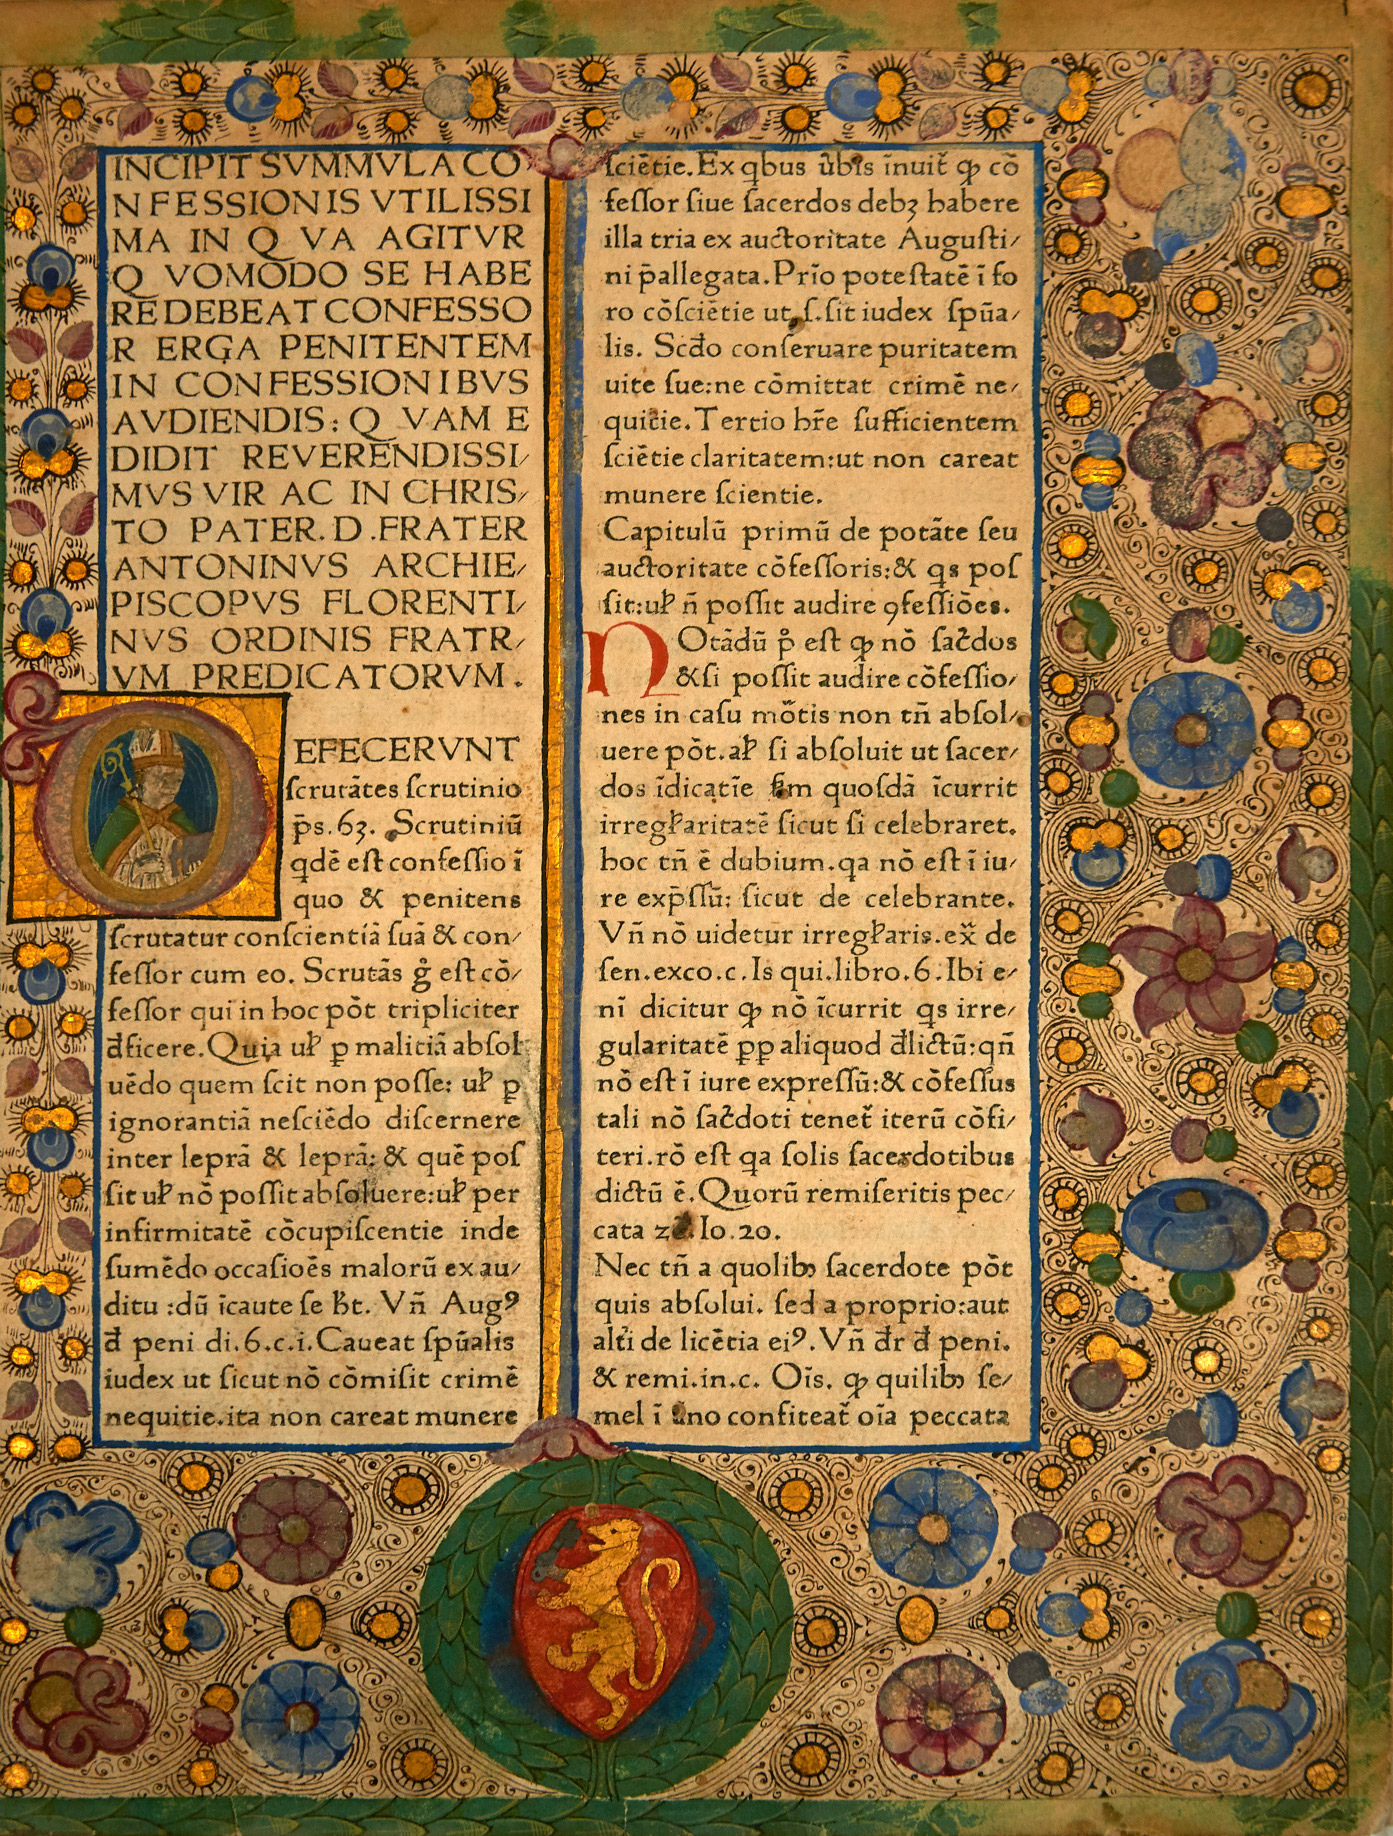 INCIPIT SVMMVLA CO
NFESSIONIS VTILISSI
MA IN Q VA AGITVR
Q VOMODO SE HABE
RE DEBEAT CONFESSO
R ERGA PENITENTEM
IN CONFESSIONIBVS
AVDIENDIS: Q VAM E
DIDIT REVERENDISSI/
MVS VIR AC IN CHRIS/
TO PATER. D. FRATER
ANTONINVS ARCHIE/
PISCOPVS FLORENTI/
NVS ORDINIS FRATR/
VM PREDICATORVM.
DEFECERVNT
ſcrutātes ſcrutinio
p̄s. 63. Scrutiniū
qdē eſt confeſſio ī
quo & penitens
ſcrutatur conſcientiā ſuā & con/
feſſor cum eo. Scrutās g̊ eſt cō/
feſſor qui in hoc pōt tripliciter
đficere. Quia uł ꝑ malitiā abſol
uēdo quem ſcit non poſſe: uł ꝑ
ignorantiā neſciēdo diſcernere
inter leprā & leprā: & quē poſ
ſit uł nō poſſit abſoluere: uł per
infirmitatē cōcupiſcentie inde
ſumēdo occaſioēs malorū ex au/
ditu :dū īcaute ſe ħt. Vn̄ Augꝰ
đ peni di.6.c.i. Caueat ſpūalis
iudex ut ſicut nō cōmiſit crimē
nequitie.ita non careat munere
ſciētie. Ex qbus ūbis īnuit̄ ꝙ cō
feſſor ſiue ſacerdos debꝫ habere
illa tria ex auctoritate Auguſti/
ni p̄allegata. Prīo poteſtatē ī fo
ro cōſciētie ut.ſ.ſit iudex ſpūa/
lis. Scđo conſeruare puritatem
uite ſue:ne cōmittat crimē ne/
quitie. Tertio hr̄e ſufficientem
ſciētie claritatem:ut non careat
munere ſcientie.
Capitulū primū de potāte ſeu
auctoritate cōfeſſoris:& qs poſ
ſit:uł n̄ poſſit audire ꝯfeſſiōes.
NOtādū p̊ eſt ꝙ nō ſac̄dos
&ſi poſſit audire cōfeſſio/
nes in caſu mōtis non tn̄ abſol/
uere pōt.ał ſi abſoluit ut ſacer/
dos īdicatīe ẜm quoſdā īcurrit
irregłaritatē ſicut ſi celebraret.
hoc tn̄ ē dubium.qa nō eſt ī iu/
re exp̄ſſū: ſicut de celebrante.
Vn̄ nō uidetur irregłaris.ex̄ de
ſen.exco.c. Is qui.libro.6. Ibi e/
nī dicitur ꝙ nō īcurrit qs irre/
gularitatē ꝓp aliquod đlictū:qn̄
nō eſt ī iure expreſſū:& cōfeſſus
tali nō ſac̄doti tenet̄ iterū cōfi/
teri.rō eſt qa ſolis ſacerdotibus
dictū ē. Quorū remiſeritis pec/
cata Io.20.
Nec tn̄ a quolibꝫ ſacerdote pōt
quis abſolui. ſed a proprio:aut
alt̄i de licētia eiꝰ. Vn̄ đr đ peni.
& remi.in.c. Oīs. ꝙ quilibꝫ ſe/
mel ī āno confiteat̄ oīa peccata